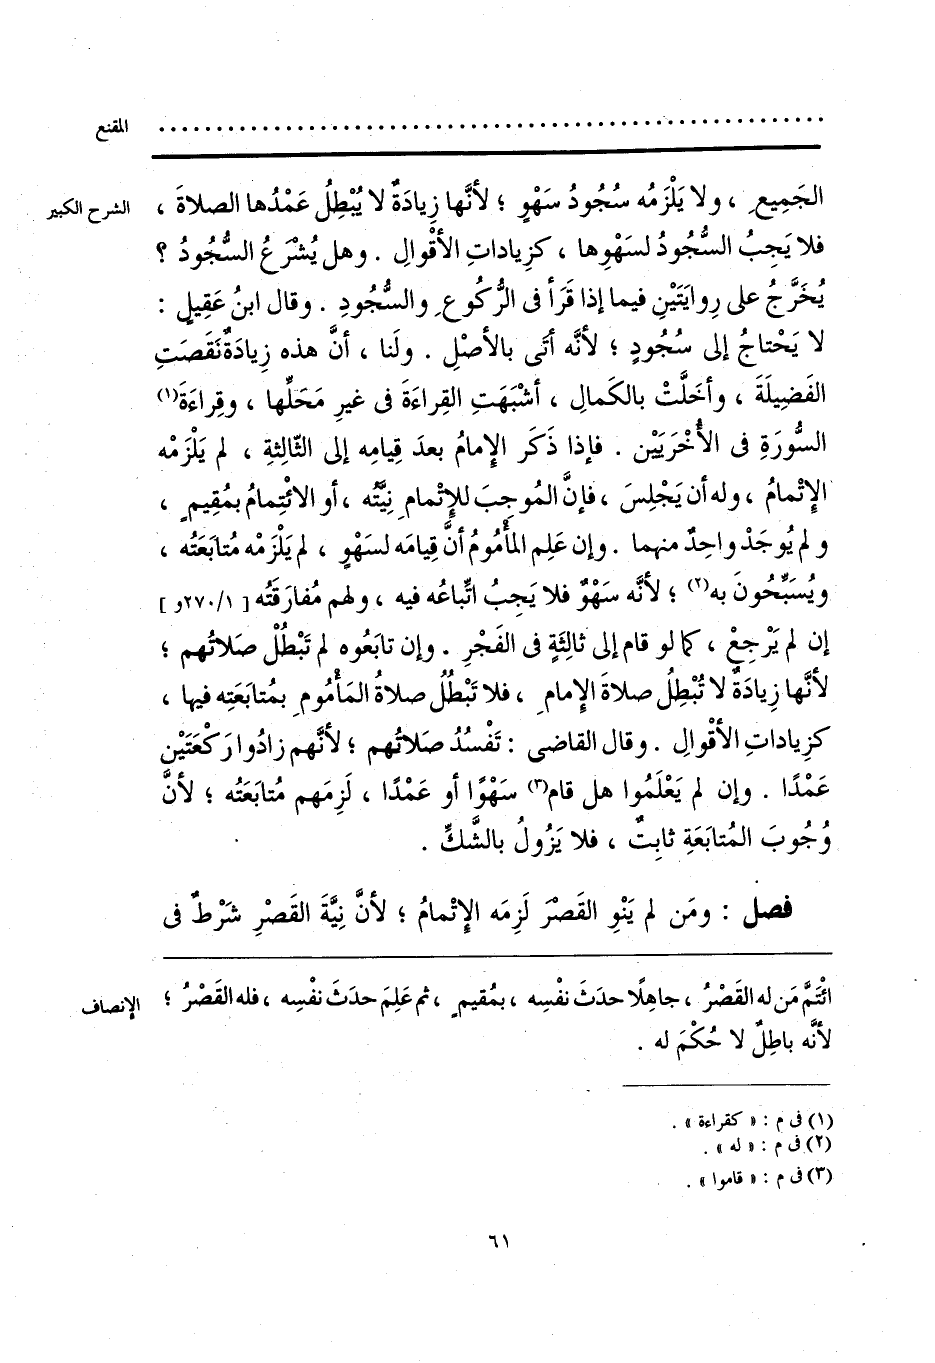 المقنع ................................................
الشرح الكبير الجَمِيعِ ، ولا يَلْزَمُه سُجُودُ سَهْوٍ ؛ لأنَّها زِيادَةٌ لا يُبْطِلُ عَمْدُها الصلاةَ ،
فلا يَجِبُ السُّجُودُ لسَهْوِها ، كزِياداتِ الأقْوالِ . وهل يُشْرَعُ السُّجُودُ ؟
يُخَرَّجُ على رِوايَتَيْنِ فيما إذا قَرَأ فى الرُّكُوعِ والسُّجُودِ . وقال ابنُ عَقِيلٍ :
لا يَحْتاجُ إلى سُجُودٍ ؛ لأنَّه أتَى بالأصْلِ . ولَنا ، أنَّ هذه زِيادَةٌ نَقَصَتِ
الفَضِيلَةَ ، وأخَلَّتْ بالكَمالِ ، أشْبَهَتِ القِراءَةَ فى غيرِ مَحَلِّها ، وقِراءَةَ(١)
السُّورَةِ فى الأُخْرَيَيْنِ . فإذا ذَكَر الإِمامُ بعدَ قِيامِه إلى الثّالِثةِ ، لم يَلْزَمْه
الإِتْمامُ ، وله أن يَجْلِسَ ، فإنَّ المُوجِبَ للإِتْمامِ نِيَّتُه ، أو الائْتِمامُ بمُقِيمٍ ،
ولم يُوجَدْ واحِدٌ منهما . وإن عَلِم المأْمُومُ أنَّ قِيامَه لسَهْوٍ ، لم يَلْزَمْه مُتابَعَتُه ،
ويُسَبِّحُونَ به(٢) ؛ لأنَّه سَهْوٌ فلا يَجِبُ اتِّباعُه فيه ، ولهم مُفارَقَتُه [ ٢٧٠/١و ]
إن لم يَرْجِعْ ، كما لو قام إلى ثالِثَةٍ فى الفَجْرِ . وإن تابَعُوه لم تَبْطُلْ صَلاتُهم ؛
لأنَّها زِيادَةٌ لا تُبْطِلُ صلاةَ الإِمامِ ، فلا تَبْطُلُ صلاةُ المَأْمُومِ بمُتابَعَتِه فيها ،
كزِياداتِ الأقْوالِ . وقال القاضى : تَفْسُدُ صَلاتُهم ؛ لأنَّهم زادُوا رَكْعَتَيْن
عَمْدًا . وإن لم يَعْلَمُوا هل قام(٣) سَهْوًا أو عَمْدًا ، لَزِمَهم مُتابَعَتُه ؛ لأنَّ
وُجُوبَ المُتابَعَةِ ثابِتٌ ، فلا يَزُولُ بالشَّكِّ .
فصل : ومَن لم يَنْوِ القَصْرَ لَزِمَه الإِتْمامُ ؛ لأنَّ نِيَّةَ القَصْرِ شَرْطٌ فى
الإنصاف ائْتَمَّ مَن له القَصْرُ ، جاهِلًا حدَثَ نفْسِه ، بمُقيمٍ ، ثم عَلِمَ حدَثَ نفْسِه ، فله القَصْرُ ؛
لأنَّه باطِلٌ لا حُكْمَ له .
(١) فى م : « كقراءة » .
(٢) فى م : « له » .
(٣) فى م : « قاموا » .
٦١